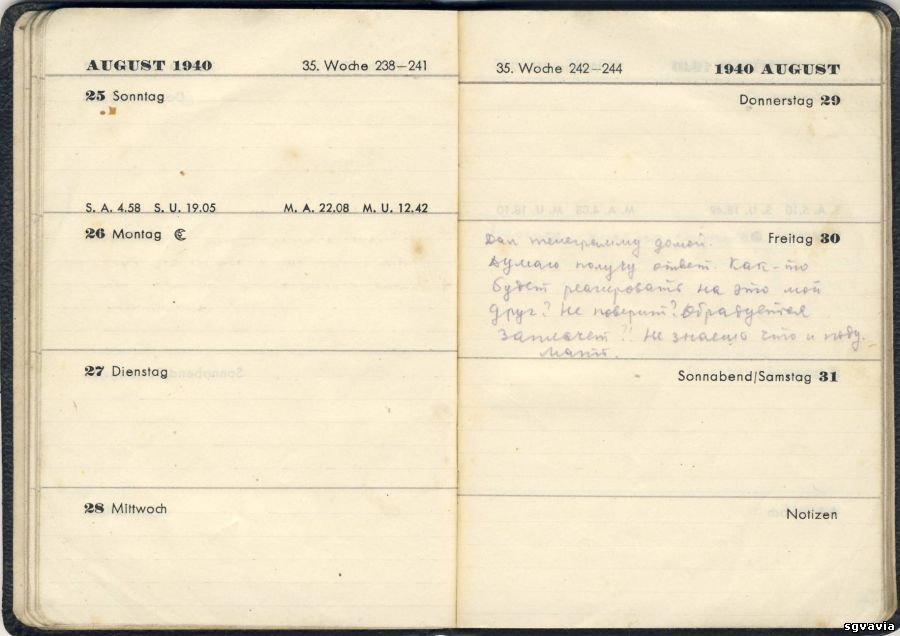 AUGUST 1940 35. Woche 238—241
25 Sonntag
S. A. 4.58 S. U. 19.05 M. A. 22.08 M. U. 12.42
26 Montag
27 Dienstag
28 Mittwoch
35. Woche 242—244 1940 AUGUST
Donnerstag 29
Freitag 30
Дал телеграмму домой.
Думаю получу ответ. Как-то
будет реагировать на это мой
друг? Не поверит? Обрадуется
Заплачет?! Не знаешь что и поду
мать.
Sonnabend/Samstag 31
Notizen
sgvavia